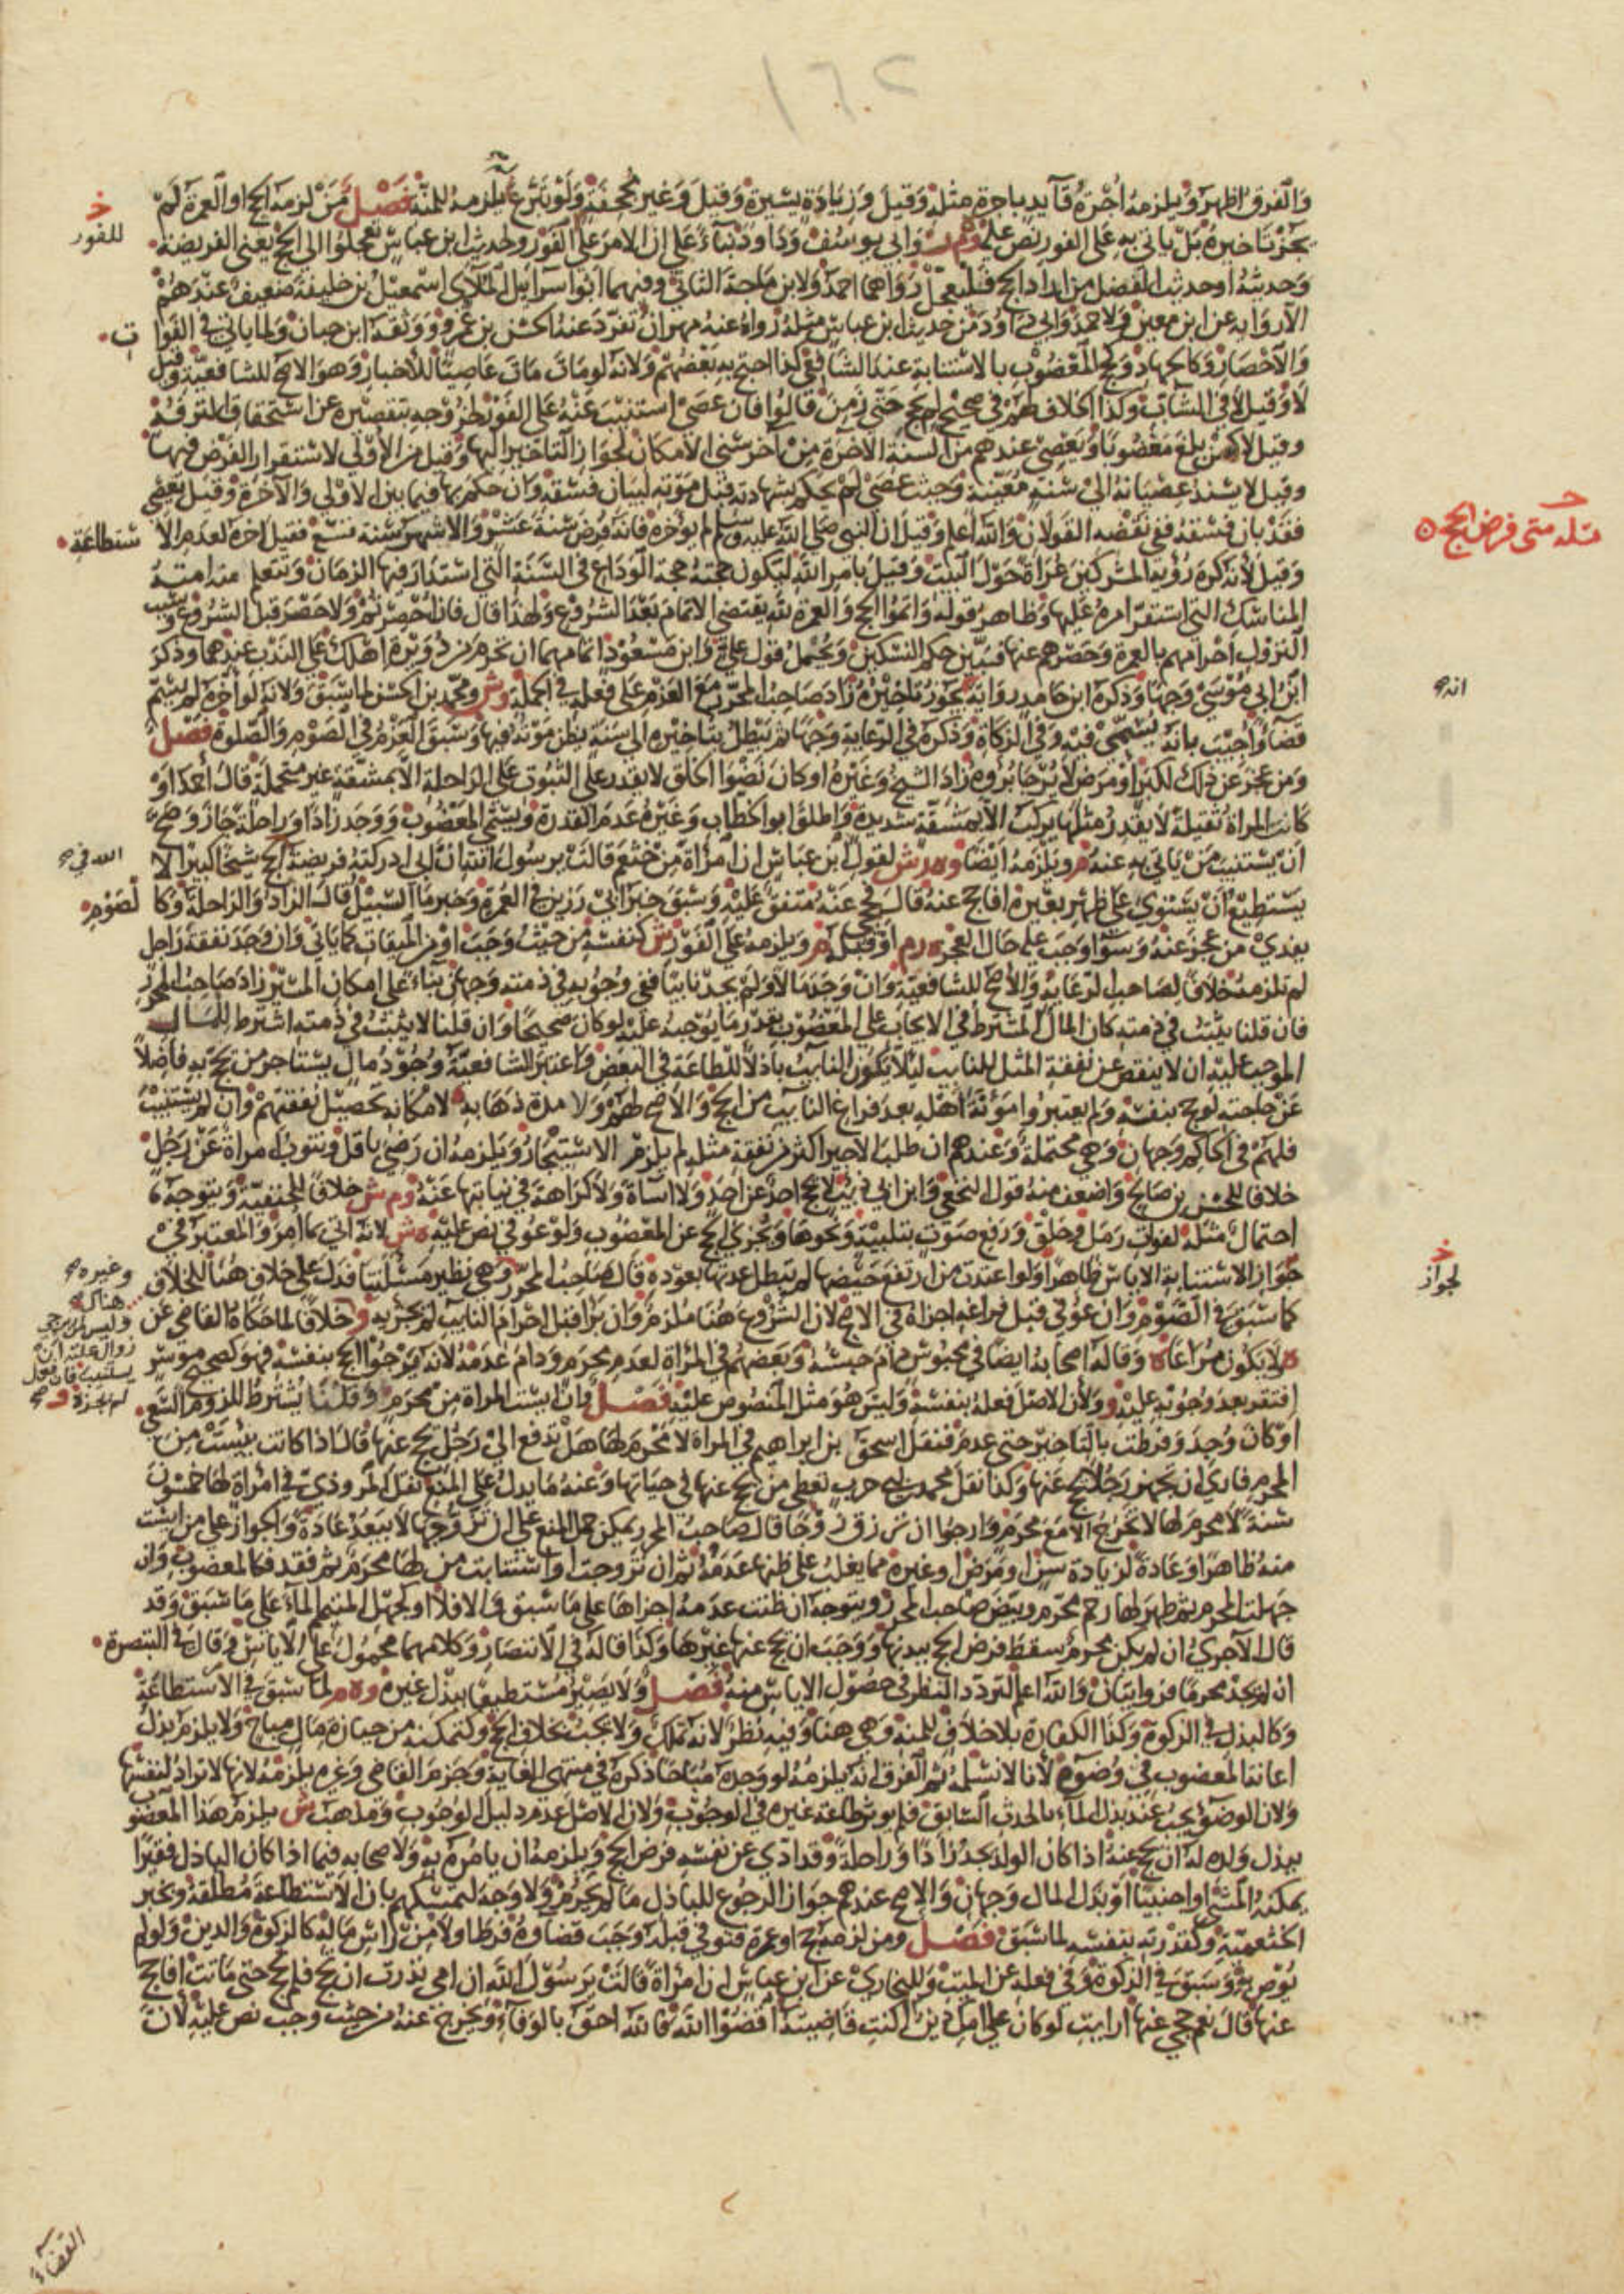 ١٦٢
والفرق اظهر ويلزمه اجرة قائد باجرة مثله وقيل وزيادة يسيرة وقيل وغير مجحفة ولو تبرع لم يلزمه للمنة فصل من لزمه الحج او العمرة لم
يجز تاخيره بل ياتي به على الفور نص عليه وم ر وابي يوسف وداود بناء على ان الامر على الفور ولحديث ابن عباس تعجلوا الى الحج يعني الفريضة
وحديثه او حديث الفضل من اراد الحج فليتعجل رواهما احمد ولابن ماجة الثاني وفيهما ابو اسرائيل الملائي اسمعيل بن خليفة ضعيف عندهم
الا رواية عن ابن معين ولاحمد وابي داود من حديث ابن عباس مثله رواه عنه مهران تفرد عنه الحسن بن عمرو ووثقه ابن حبان ولما ياتي في الفوات
والاحصار وكالجهاد وحج المعضوب بالاستنابة عند الشافعي كذا احتج به بعضهم ولانه لو مات مات عاصيا للاخبار وهو الاصح للشافعية وقيل
لا وقيل لا في الشاب وكذا الخلاف لهم في صحيح لم يحج حتى زمن قالوا فان عصى استنيب عنه على الفور لخروجه بتقصيره عن استحقاق الترفه
وقيل لا كمن بلغ معضوبا ويعصي عندهم من السنة الاخرة من آخر سني الامكان لجواز التاخير اليها وقيل من الاولى لاستقرار الفرض فيها
وقيل لا يسند عصيانه الى سنة معينة وحيث عصى لم يحكم بشهادته قبل موته لبيان فسقه وان حكم بها فيما بين الاولى والاخرة وقيل يعصي
فقد بان فسقه ففي نقضه القولان والله اعلم وقيل ان النبي صلى الله عليه وسلم لم يؤخره فانه فرض سنة عشر والاشهر سنة تسع فقيل اخره لعدم الاستطاعة
وقيل لانه كره رؤية المشركين عراة حول البيت وقيل بامر الله ليكون حجته حجة الوداع في السنة التي استدار فيها الزمان وتتعلم منه امته
المناسك التي استقر امره عليها وظاهر قوله واتموا الحج والعمرة لله يقتضي الاتمام بعد الشروع ولهذا قال فان احصرتم ولا حصر قبل الشروع وسبب
النزول احرامهم بالعمرة وحصرهم عنها فبين حكم النسكين ويحتمل قول علي وابن مسعود اتمامهما ان تحرم من دويرة اهلك على الندب عندهما وذكر
ابن ابي موسى وجها وذكره ابن حامد رواية انه يجوز تاخيره زاد صاحب المحرر مع العزم على فعله في الجملة وش ومحمد بن الحسن لما سبق ولانه لو اخره لم يسم
قضاء واجيب بانه يسمى فيه وفي الزكاة وذكره في الرعاية وجها ثم تبطل بتاخيره الى سنة يظن موته فيها وسبق العزم في الصوم والصلوة فصل
ومن عجز عن ذلك لكبر او مرض لا يرجا برؤه زاد الشيخ وغيره او كان نضوا الخلق لا يقدر على الثبوت على الراحلة الا بمشقة غير محتملة قال احمد او
كانت المراة ثقيلة لا يقدر مثلها يركب الا بمشقة شديدة واطلق ابو الخطاب وغيره عدم القدرة ويسمى المعضوب ووجد زادا وراحلة جاز وصح
ان يستنيب من ياتي به عنه م ويلزمه ايضا وه ر ش لقول ابن عباس ان امراة من خثعم قالت يرسول الله ان ابي ادركته فريضة الله في الحج شيخا كبيرا لا
يستطيع ان يستوي على ظهر بعيره افاحج عنه قال حجي عنه متفق عليه وسبق خبر ابي رزين في العمرة وخبر ما السبيل قال الزاد والراحلة وكالصوم
يفدي من عجز عنه وسوا وجب عليه حال العجز ه ر م او قبله م ر ويلزمه على الفور ش كنفسه من حيث وجب او من الميقات كما ياتي وان وجد نفقة راجل
لم تلزمه خلافا لصاحب الرعاية والاصح للشافعية وان وجد مالا ولم يجد نايبا ففي وجوبه في ذمته وجهان بناء على امكان المسير زاد صاحب المحرر
فان قلنا يثبت في ذمته كان المال المشترط في الايجاب على المعضوب بقدر ما يوجبه عليه لو كان صحيحا وان قلنا لا يثبت في ذمته اشترط للمال
الموجب عليه ان لا ينقص عن نفقة المثل للنايب ليلا يكون النايب باذلا للطاعة في البعض واعتبر الشافعية وجود مال يستاجر من يحج به فاضلا
عن حاجته لو حج بنفسه ولم يعتبروا مؤنة اهله بعد فراغ النايب من الحج والاصح لهم ولا مدة ذهابه لامكانه تحصيل نفقتهم وان لم يستنب
فلهم في الحاكم وجهان وهي محتملة وعندهم ان طلب الاجير اكثر من نفقة مثله لم يلزم الاستيجار ويلزمه ان رضي باقل وتنوب امراة عن رجل
خلافا للحسن بن صالح واضعف منه قول النخعي وابن ابي ذيب لا يحج احد عن احد ولا اساة ولا كراهة في نيابتها عنه وم ش خلافا للحنفية ويتوجه
احتمال مثله لفوات رمل وحلق ورفع صوت بتلبية ونحوها ويجزي الحج عن المعضوب ولو عوفي نص عليه ه ش لانه اتى بما امر والمعتبر في
جواز الاستنابة الاياس ظاهرا ولو اعتدت من ارتفع حيضها لم تبطل عدتها بعوده قال صاحب المحرر وهي نظير مسئلتنا فدل على خلاف هنا للخلاف
كما سبق في الصوم وان عوفي قبل فراغه اجزاه في الاصح لان الشروع هنا ملزم وان برا قبل احرام النايب لم يجز به و خلافا لما حكاه القاضي عن
ه لا يكون مراعا وقاله اصحابه ايضا في محبوس دام حبسه وبعضهم في المراة لعدم محرم ودام عدمه لانه يرجو الحج بنفسه فهو كصحيح موسر
افتقر بعد وجوبه عليه و ولان الاصل فعله بنفسه وليس هو مثل المنصوص عليه فصل وان ايست المراة من محرم وقلنا يشترط للزوم السعي
او كان وجد وفرطت بالتاخير حتى عدم فنقل اسحق بن ابراهيم في المراة لا محرم لها هل تدفع الى رجل يحج عنها قال اذا كانت يئست من
المحرم فاري ان تجهز رجلا يحج عنها وكذا نقل محمد بن ابي حرب تعطي من يحج عنها في حياتها وعنه ما يدل على المنع نقل المروذي في امراة لها خمسون
سنة لا محرم لها لا تخرج الا مع محرم وارجوا ان ترزق زوجا قال صاحب المحرر يمكن حمل المنع على ان تزوجها لا يبعد عادة والجواز على من ايست
منه ظاهرا وعادة لزيادة سن او مرض او غيره مما يغلب على ظنها عدمه ثم ان تزوجت او استنابت من لها محرم ثم فقد فكالمعضوب وان
جهلت المحرم ثم ظهر لها رحم محرم وبيض صاحب المحرر ويتوجه ان ظنت عدمه اجزاها على ما سبق والا فلا او لجهل المتيمم الماء على ما سبق وقد
قال الآجري ان لم يكن محرم سقط فرض الحج ببدنها ووجب ان يحج عنها غيرها وكذا قاله في الانتصار وكلامهما محمول على الاياس وقال في التبصرة
ان لم تجد محرما فروايتان والله اعلم لتردد النظر في حصول الاياس منه فصل ولا يصير مستطيعا ببذل غيره وه م لما سبق في الاستطاعة
وكالبذل في الزكوة وكذا الكفارة بلا خلاف للمنة وهي هنا وفيه نظر لانه تملك ولا يجب بخلاف الحج ولتمكنه من حيازة مال مباح ولا يلزم بذل
اعانة المعضوب في وضوء لانا لا نسلمه ثم الفرق انه يلزمه لو وجده مباحا ذكره في منتهى الغاية وجزم القاضي وغيره يلزمه لانها لا تراد لنفسها
ولان الوضؤ يجب عند بذل الماء بالحدث السابق فلم يوثر طاعة غيره في الوجوب ولان الاصل عدم دليل الوجوب ومذهب ش يلزم هذا المعضوب
ببذل ولده له ان يحج عنه اذا كان الولد يجد زادا وراحلة وقد ادي عن نفسه فرض الحج ويلزمه ان يامره به ولاصحابه فيما اذا كان الباذل فقيرا
يمكنه المشي او اجنبيا او بذل المال وجهان والاصح عندهم جواز الرجوع للباذل ما لم يحرم ولا وجه لتمسكهم بان الاستطاعة مطلقة وبخبر
الخثعمية وكقدرته بنفسه لما سبق فصل ومن لزمه حج او عمرة فتوفي قبله وجب قضاوه فرط او لا من راس ماله كالزكوة والدين ولو لم
يوص به وسبق في الزكوة وفي فعله عن الميت وللبخاري عن ابن عباس ان امراة قالت يرسول الله ان امي نذرت ان تحج فلم تحج حتى ماتت افاحج
عنها قال نعم حجي عنها ارايت لو كان على امك دين اكنت قاضيته اقضوا الله فالله احق بالوفاء ويخرج عنه من حيث وجب نص عليه لان
خ
للفور
مسئلة متى فرض الحج
انه
خ
لجواز
وغيره
هناك
وليس لمن يرجى
زوال علته ان
يستنيب فان فعل
لم يجزه و
القضاء